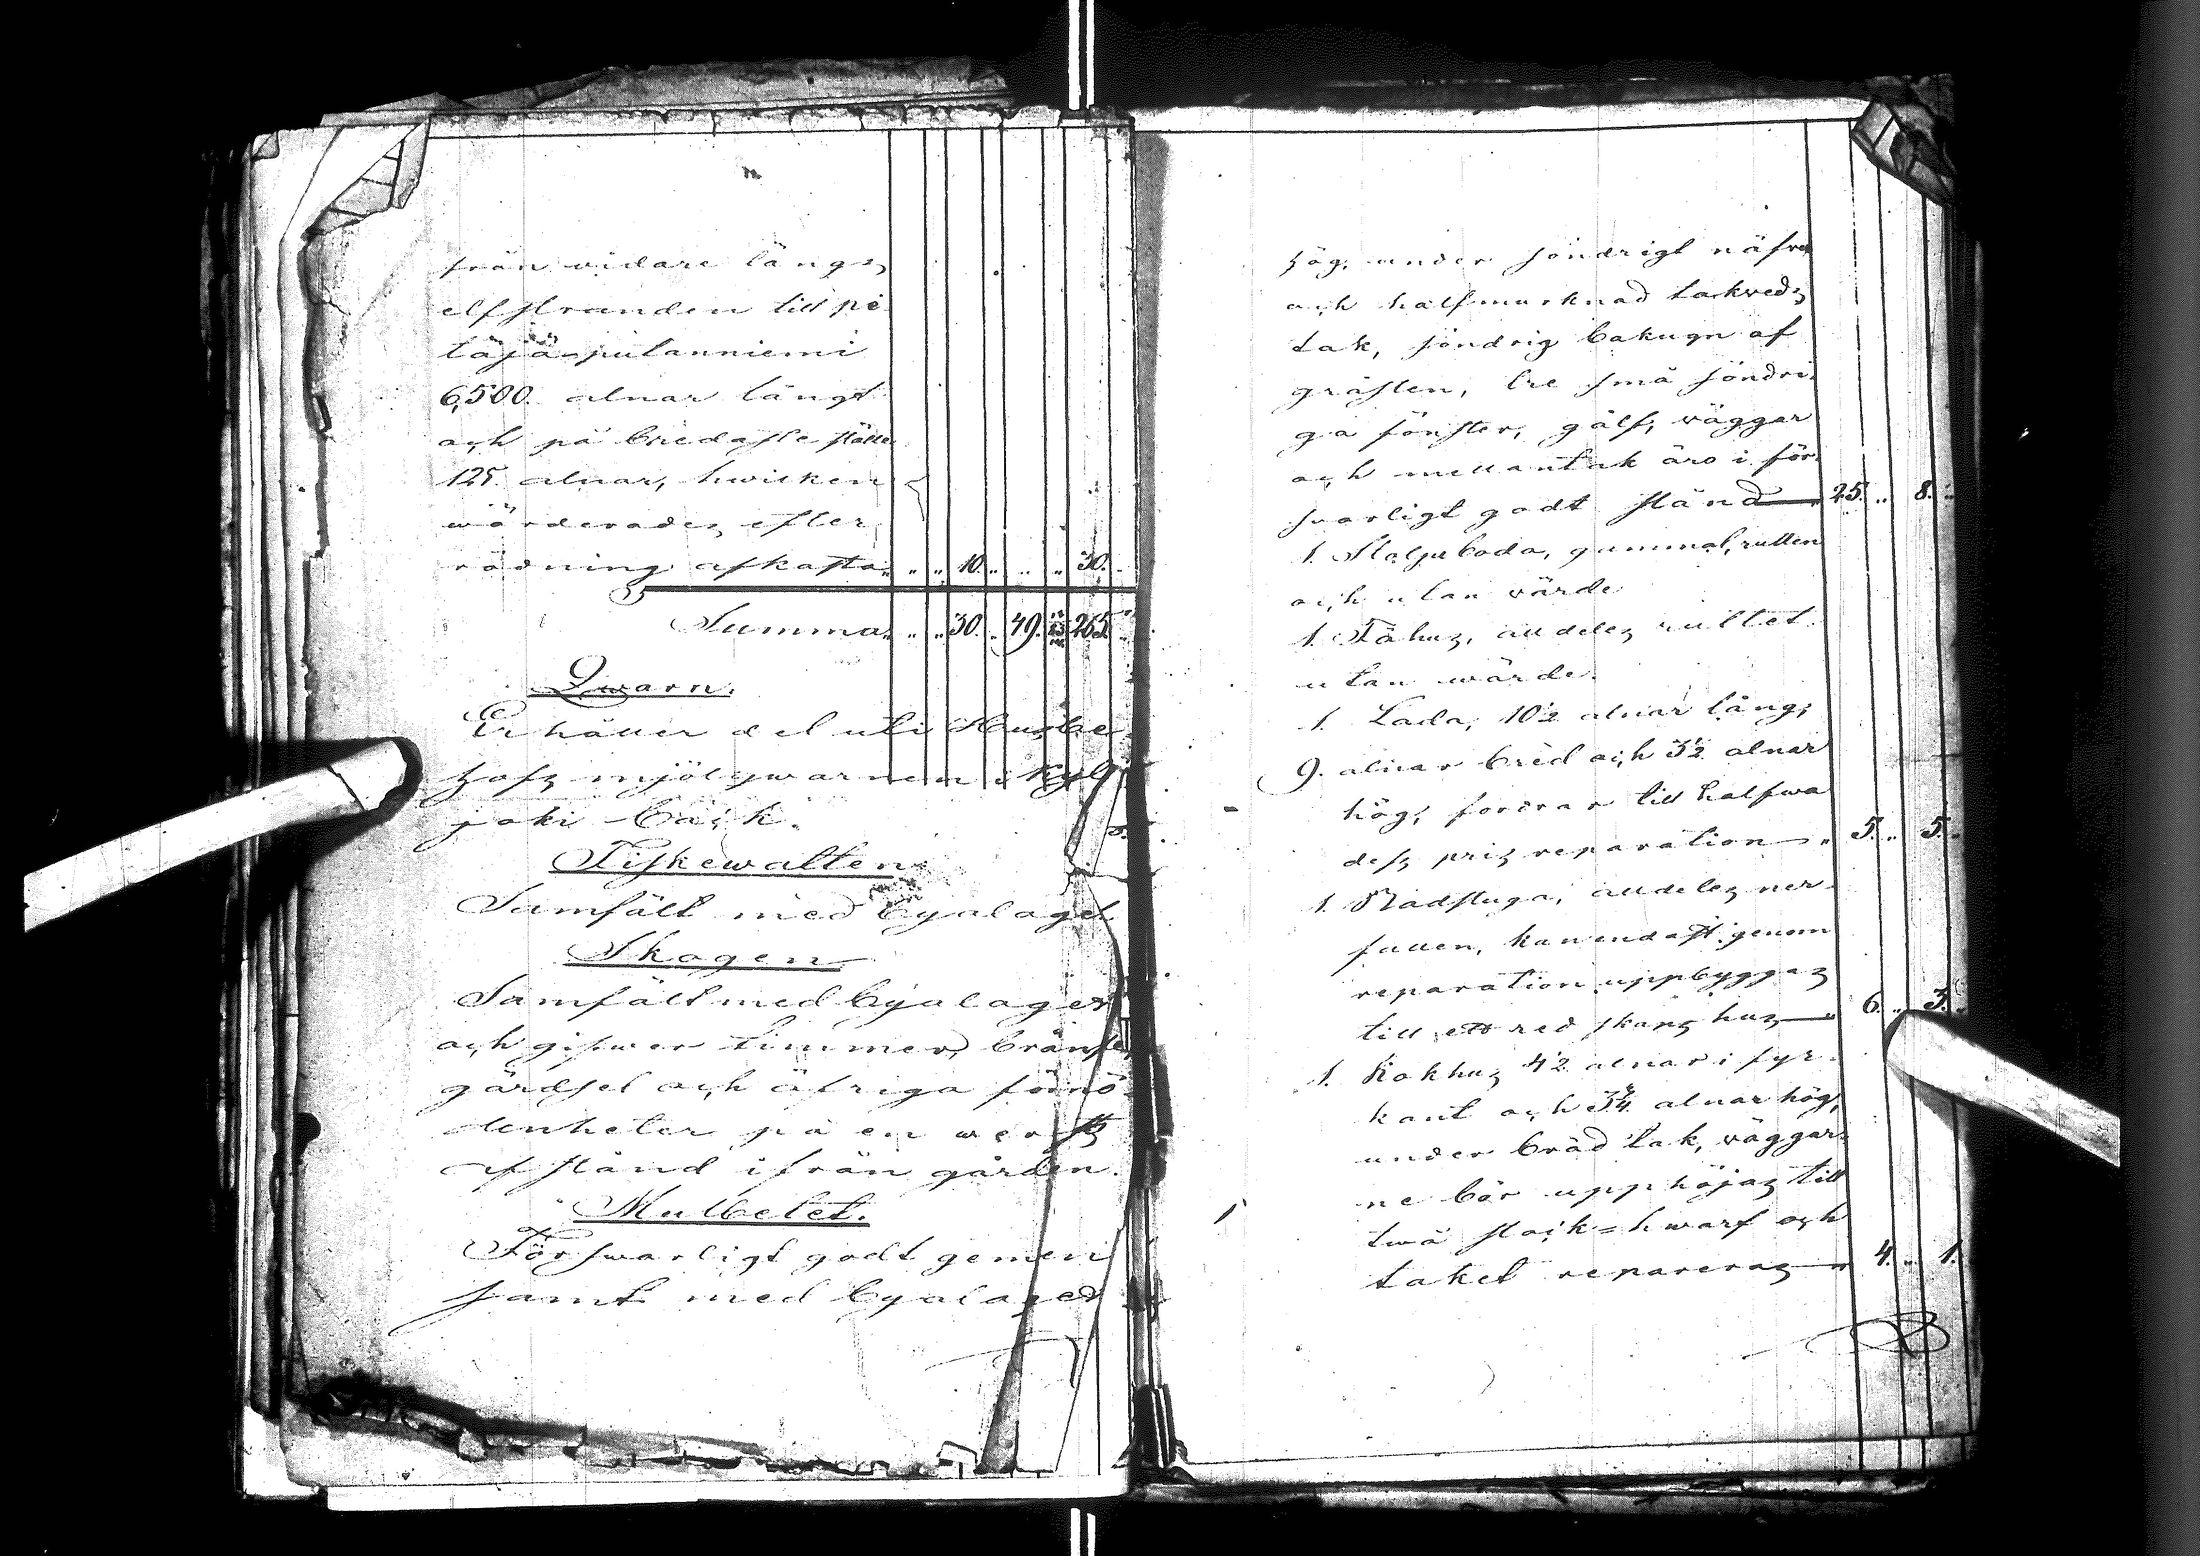 från vidare längs
elfstranden till pi
täjä-pulanniemi
6,500. alnar långt
och på bredaste ställe
125. alnar, hwilken
wärderades efter
rödning afkasta „ „ 10. „ „ „ 30.
Summa „ „ 30. „ 49. 265.
Qwarn.
Er håller del uti Husbe
hofs mjölqwarnen i Kyl
joki bäck.
Fiskewatten
Samfält med byalaget
Skogen
Samfält med byalaget
och gifwer timmer, bränsle,
gärdsel och öfriga förnö-
denheter på en werst
afstånd ifrån gården.
Mulbetet.
Förswarligt godt gemen
samt med byalaget
hög, under söndrigt näfver
och halfmurknad takveds
tak, söndrig bakugn af
gråsten, tre små söndri-
ga fönster, gålf, väggar
och mellantak äro i för-
svarligt godt stånd 25. „ 8.
1. Stolpeboda, gammal, rutten
och utan värde
1. Fähus, alldeles ruttet
utan wärde.
1. Lada, 10½ alnar lång,
9. alnar bred och 3½ alnar
hög, fordrar till halfwa
dess pris reparation „ 5. „ 5.
1. Badstuga, alldeles ner-
fallen, kan endast genom
reparation uppbyggas
till ett redskaps hus „ 6. „ 3.
1. Kokhus 4½ alnar i fyr-
kant och 3¾ alnar hög,
under bräd tak, väggar-
ne bör upphöjas till
twå stock=hwarf och
taket repareras „ 4. „ 1.